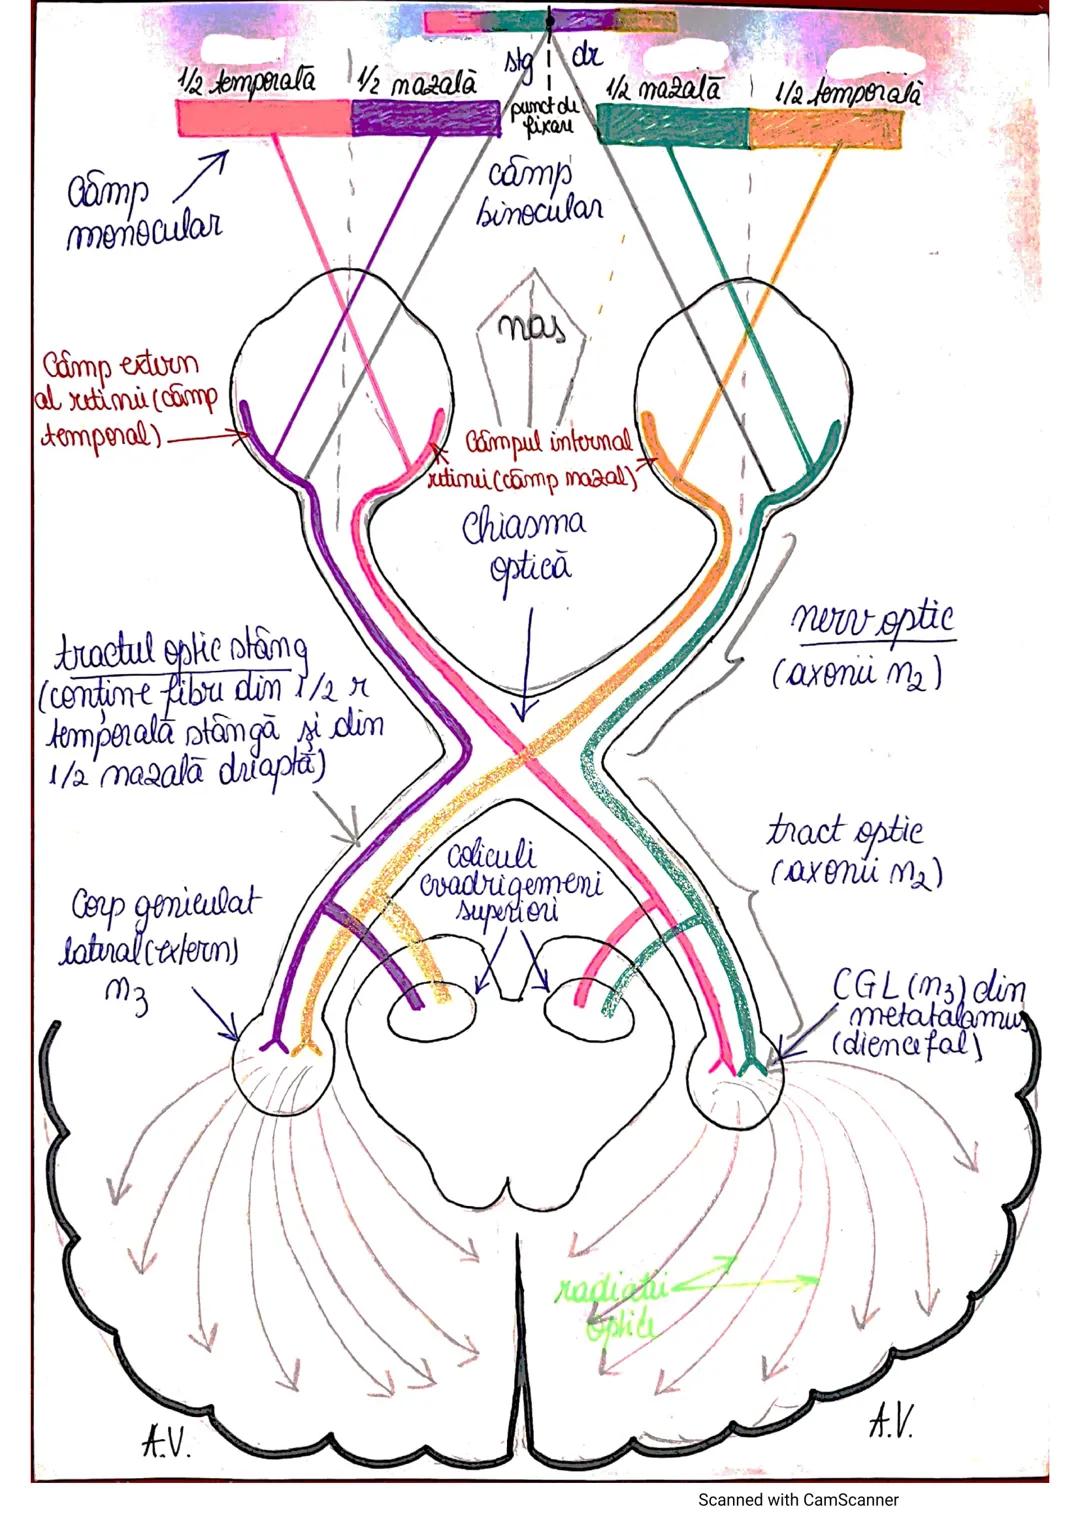 stg | dr
1/2 temporală | 1/2 nazală
1/2 nazală | 1/2 temporală
punct de
fixare
Câmp
monocular
câmp
binocular
nas
Câmp extern
al retinei (câmp
temporal)
Câmpul internal
retinei (câmp nazal)
Chiasma
optică
nerv optic
(axonii n2)
tractul optic stâng
(conține fibre din 1/2 r
temporală stângă și din
1/2 nazală dreaptă)
tract optic
(axonii n2)
coliculi
cvadrigemeni
superiori
Corp geniculat
lateral (extern)
n3
CGL (n3) din
metatalamus
(diencefal)
radiații
optice
A.V.
A.V.
Scanned with CamScanner